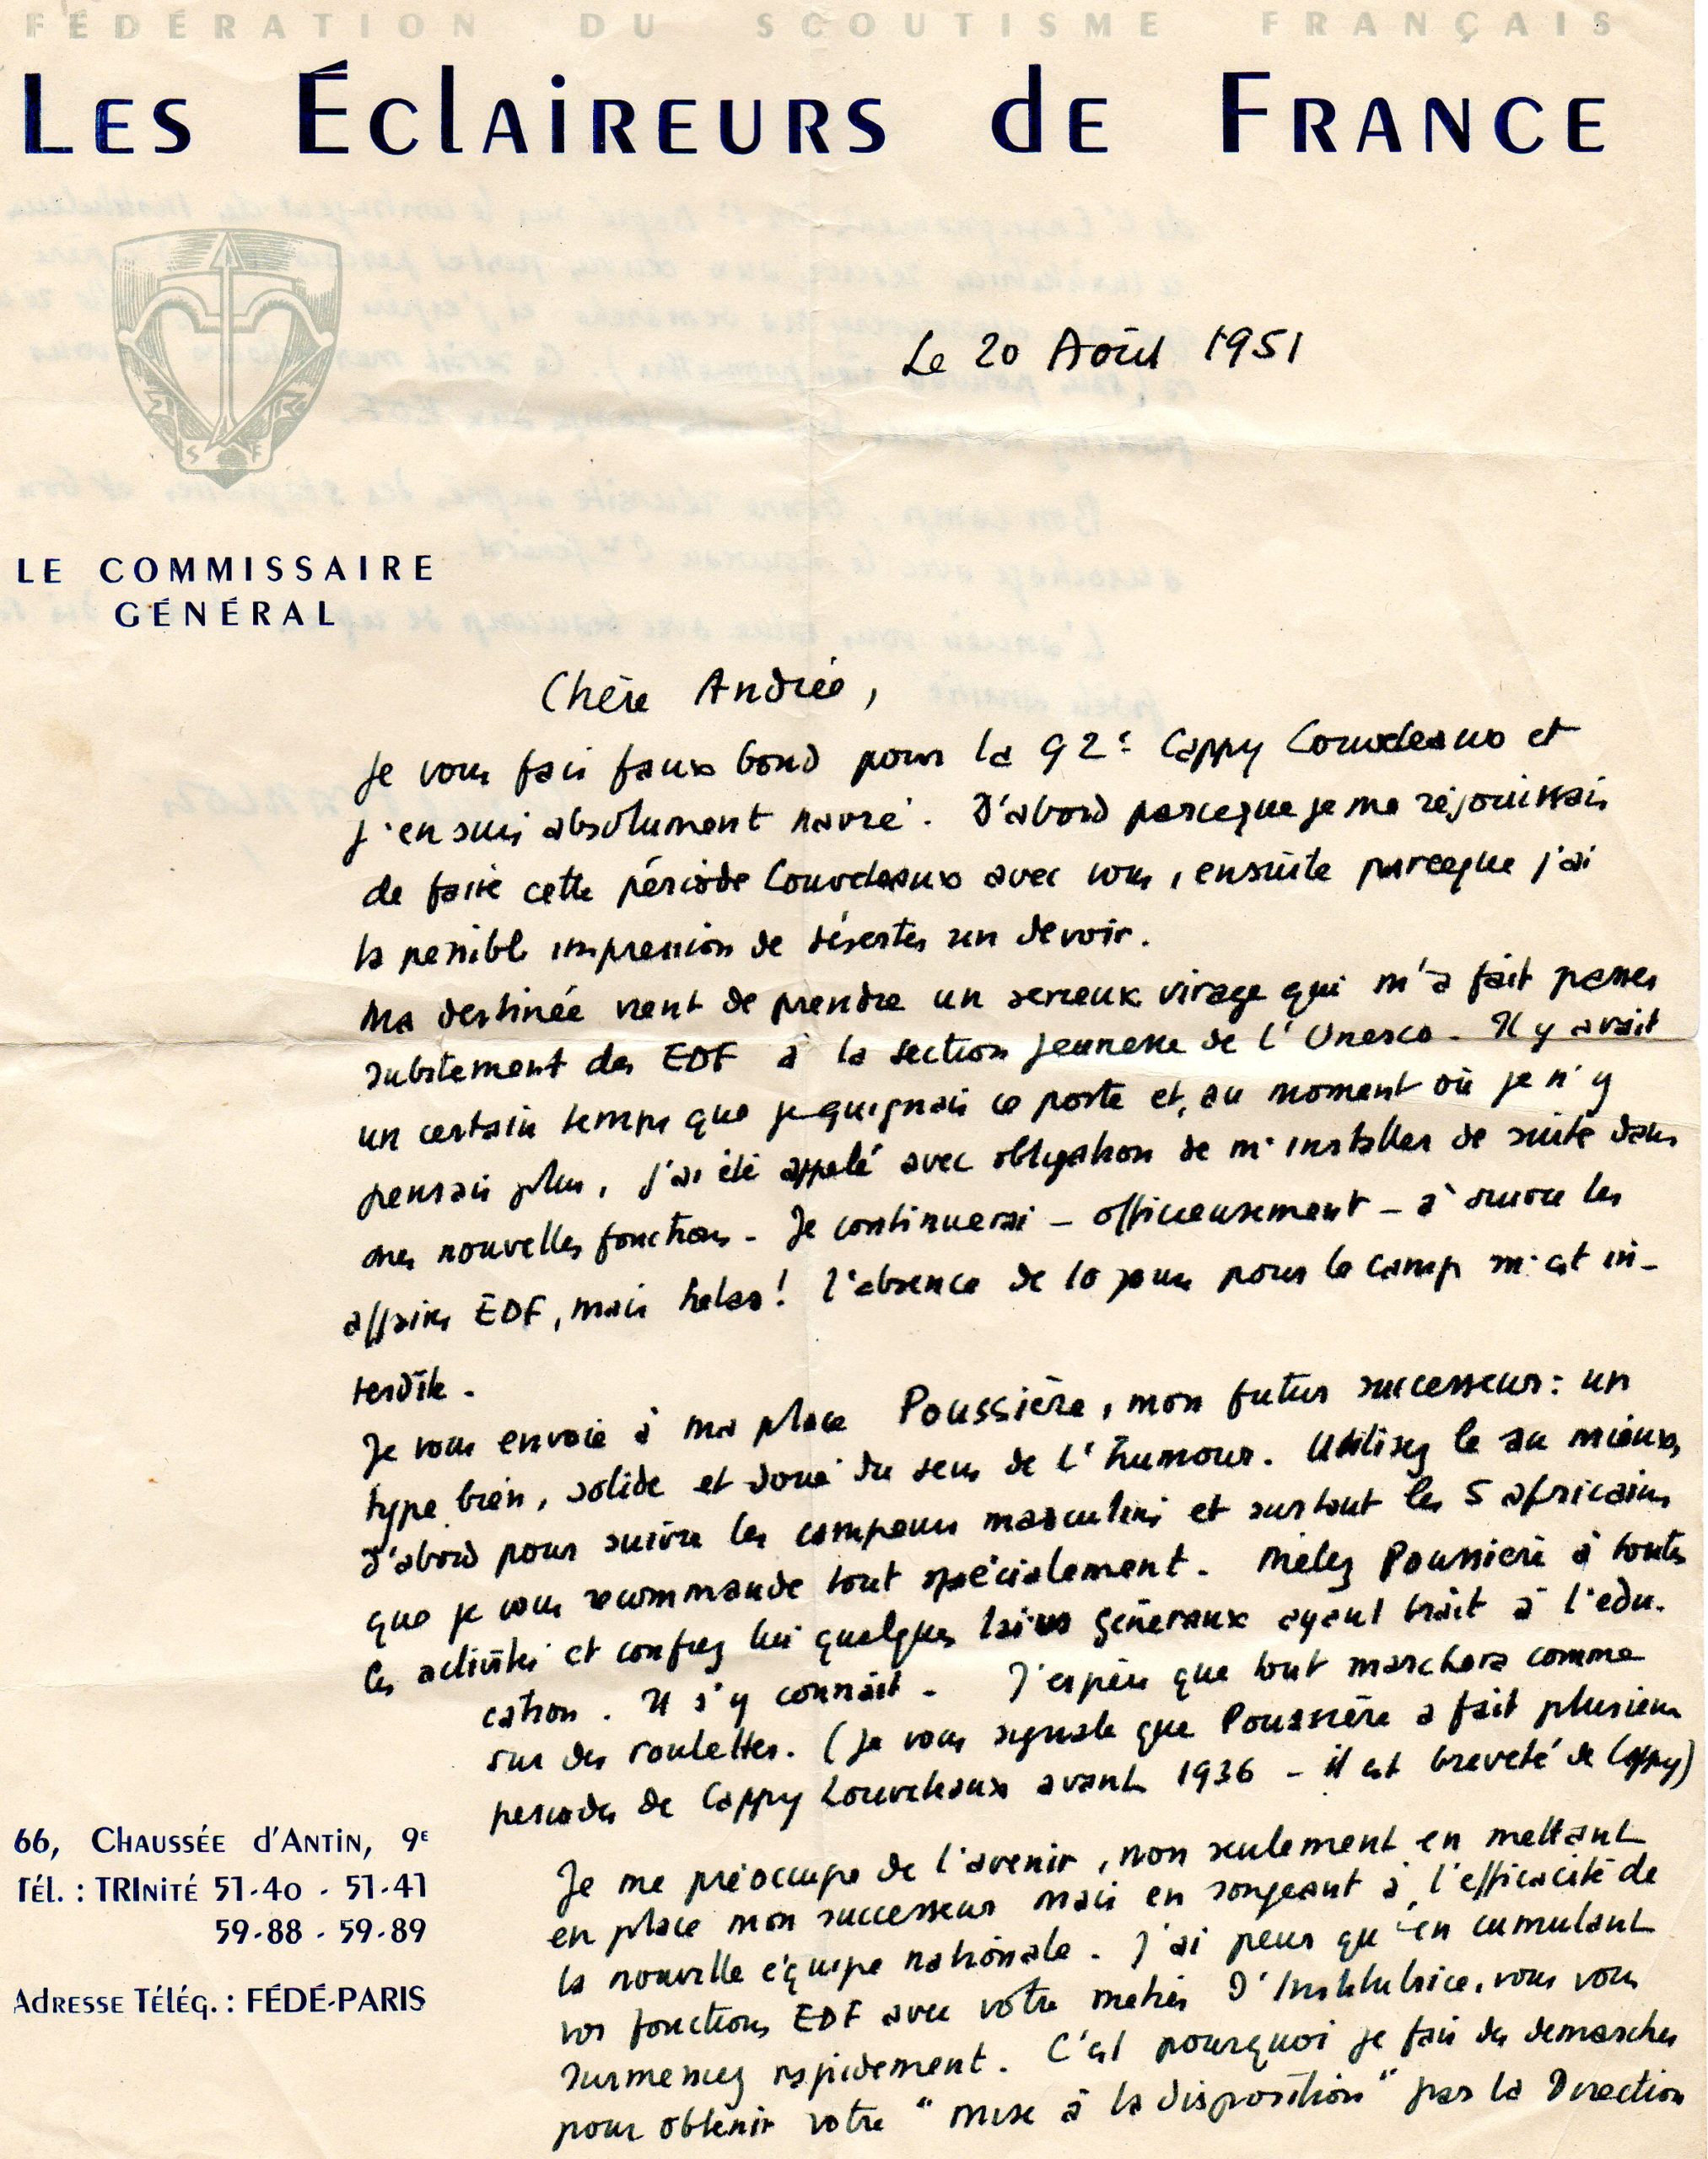 FÉDÉRATION DU SCOUTISME FRANÇAIS
LES ÉCLAIREURS DE FRANCE
Le 20 Août 1951
S F
LE COMMISSAIRE
GÉNÉRAL
Chère Andrée,
Je vous fais faux bond pour la 92e Cappy Louveteaux et
j'en suis absolument navré. D'abord parceque je me réjouissais
de faire cette période Louveteaux avec vous, ensuite parceque j'ai
la penible impression de déserter un devoir.
Ma destinée vient de prendre un serieux virage qui m'a fait passer
subitement des EDF à la section Jeunesse de l'Unesco. Il y avait
un certain temps que je guignais ce poste et, au moment où je n'y
pensais plus, j'ai été appelé avec obligation de m'installer de suite dans
mes nouvelles fonctions. Je continuerai - officieusement - à suivre les
affaires EDF, mais helas! l'absence de 10 jours pour le camp m'est in-
terdite.
Je vous envoie à ma place Poussière, mon futur successeur: un
type bien, solide et doué du sens de l'humour. Utilisez le au mieux,
d'abord pour suivre les campeurs masculins et surtout les 5 africains
que je vous recommande tout spécialement. Mêlez Poussière à toutes
les activités et confiez lui quelques laïus généraux ayant trait à l'edu-
cation. Il s'y connait. J'espère que tout marchera comme
sur des roulettes. (Je vous signale que Poussière a fait plusieurs
periodes de Cappy Louveteaux avant 1936 - il est breveté de Cappy)
Je me préoccupe de l'avenir, non seulement en mettant
en place mon successeur mais en songeant à l'efficacité de
la nouvelle équipe nationale. J'ai peur qu'en cumulant
vos fonctions EDF avec votre metier d'Institutrice, vous vous
surmeniez rapidement. C'est pourquoi je fais des demarches
pour obtenir votre "mise à la disposition" par la Direction
66, CHAUSSÉE d'ANTIN, 9E
TÉL. : TRINITÉ 51-40 - 51-41
59-88 - 59-89
ADRESSE TÉLÉG. : FÉDÉ-PARIS